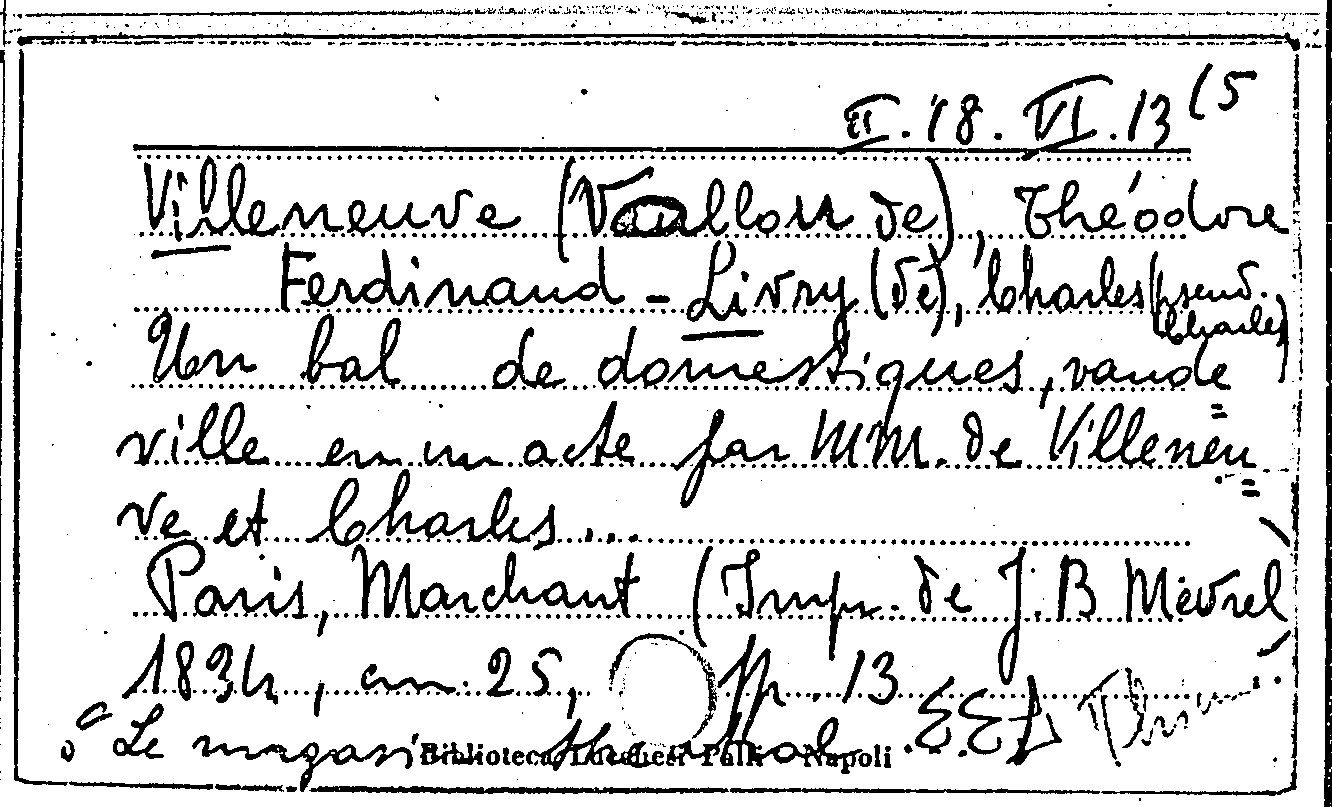 II.18.VI.13(5
Villeneuve (Vallon de), Théodore
Ferdinand - Livry (de), Charles (pseud.
Charles)
Un bal de domestiques, vaude=
ville en un acte par MM. de Villeneu=
ve et Charles...
Paris, Marchant (Impr. de J. B Mevrel)
1834, cm. 25, pp. 13
Le magasin théatral
Biblioteca Lucchesi Palli Napoli